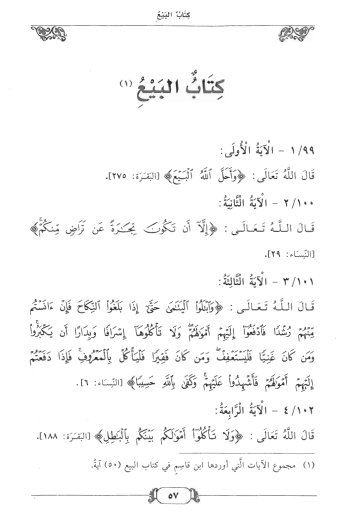 كِتَابُ البَيْعُ
كِتَابُ البَيْعُ (١)
١/٩٩ - الْآيَةُ الْأُولَى:
قَالَ اللَّهُ تَعَالَى: ﴿وَأَحَلَّ اللَّهُ الْبَيْعَ﴾ [البَقَرَة: ٢٧٥].
٢/١٠٠ - الْآيَةُ الثَّانِيَةُ:
قَالَ اللَّهُ تَعَالَى: ﴿إِلَّا أَن تَكُونَ تِجَارَةً عَن تَرَاضٍ مِّنكُمْ﴾
[النِّسَاء: ٢٩].
٣/١٠١ - الْآيَةُ الثَّالِثَةُ:
قَالَ اللَّهُ تَعَالَى: ﴿وَابْتَلُوا الْيَتَامَى حَتَّى إِذَا بَلَغُوا النِّكَاحَ فَإِنْ آنَسْتُم
مِّنْهُمْ رُشْدًا فَادْفَعُوا إِلَيْهِمْ أَمْوَالَهُمْ وَلَا تَأْكُلُوهَا إِسْرَافًا وَبِدَارًا أَن يَكْبَرُوا
وَمَن كَانَ غَنِيًّا فَلْيَسْتَعْفِفْ وَمَن كَانَ فَقِيرًا فَلْيَأْكُلْ بِالْمَعْرُوفِ فَإِذَا دَفَعْتُمْ
إِلَيْهِمْ أَمْوَالَهُمْ فَأَشْهِدُوا عَلَيْهِمْ وَكَفَى بِاللَّهِ حَسِيبًا﴾ [النِّسَاء: ٦].
٤/١٠٢ - الْآيَةُ الرَّابِعَةُ:
قَالَ اللَّهُ تَعَالَى: ﴿وَلَا تَأْكُلُوا أَمْوَالَكُم بَيْنَكُم بِالْبَاطِلِ﴾ [البَقَرَة: ١٨٨].
(١) مجموع الآيات الَّتي أوردها ابن قاسِم في كتاب البيع (٥٠) آيةً.
٥٧